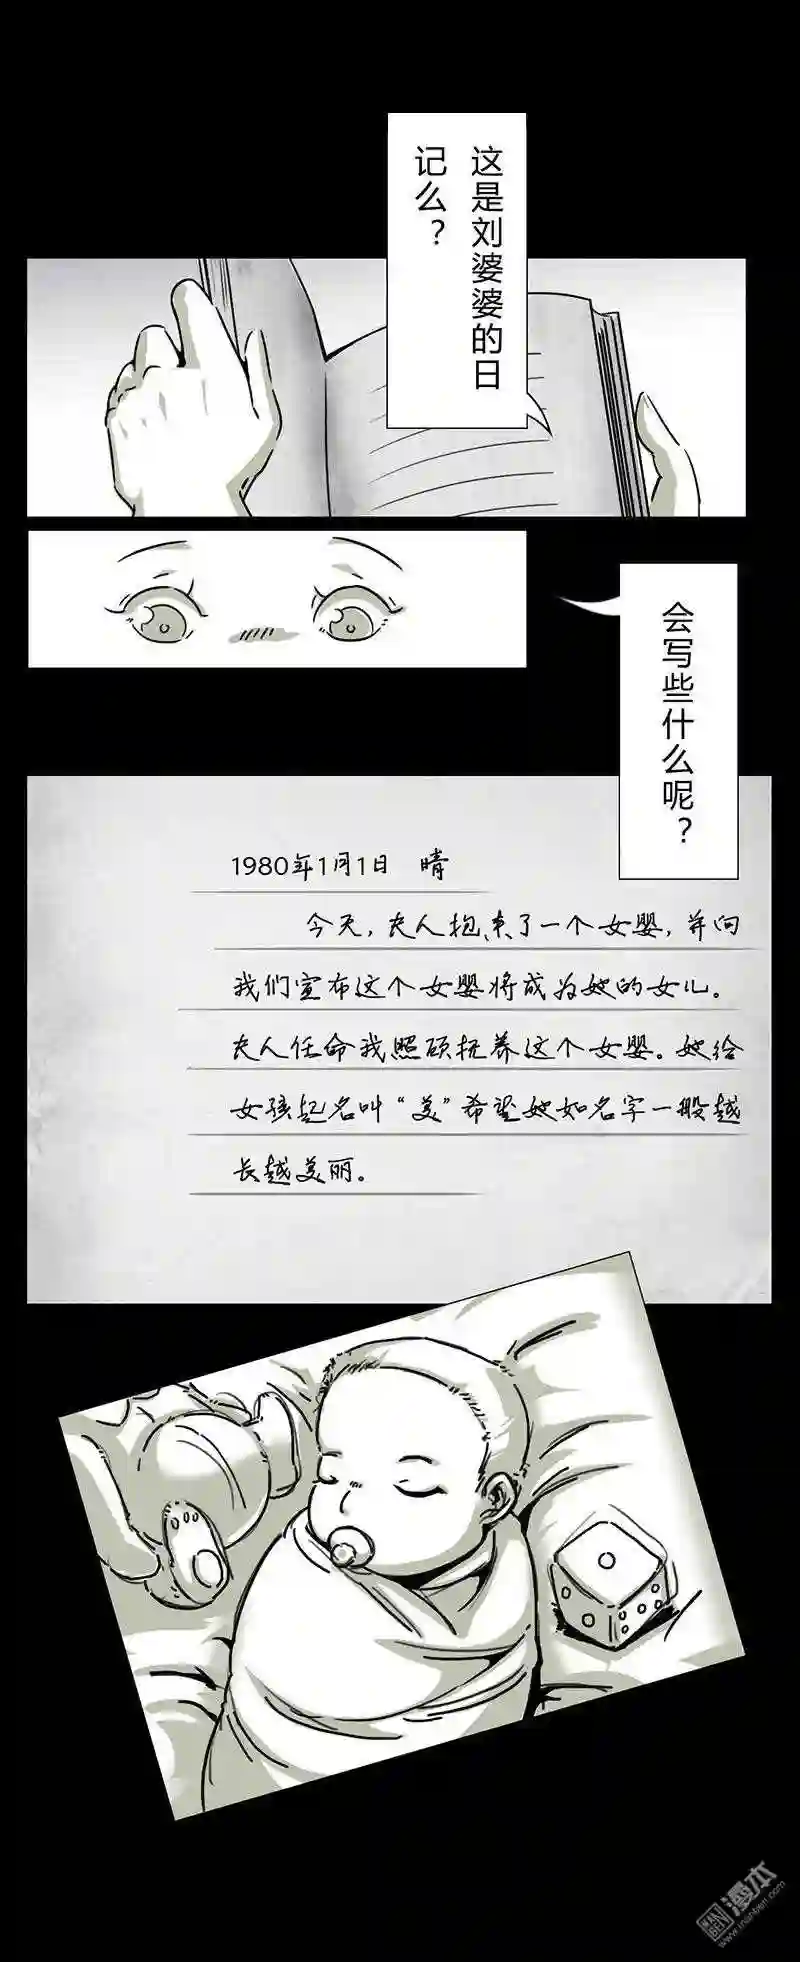 这是刘婆婆的日
记么？
会写些什么呢？
1980年1月1日 晴
今天，夫人抱来了一个女婴，并向
我们宣布这个女婴将成为她的女儿。
夫人任命我照顾抚养这个女婴。她给
女孩起名叫“美”希望她如名字一般越
长越美丽。
MAN
BEN
漫本
www.manben.com